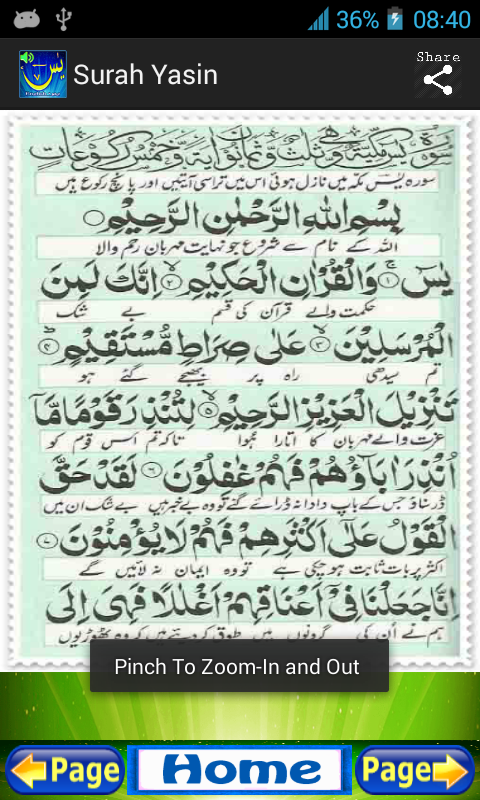 36% 08:40
Surah Yasin
Share
سورة يس مكية وهي ثلث وثمانون اية وخمس ركوعات
سورہ یٰسٓ مکہ میں نازل ہوئی اس میں تراسی آیتیں اور پانچ رکوع ہیں
بِسْمِ اللهِ الرَّحْمٰنِ الرَّحِيْمِ
اللہ کے نام سے شروع جو نہایت مہربان رحم والا
يٰسٓ ۱ وَالْقُرْاٰنِ الْحَكِيْمِ ۲ اِنَّكَ لَمِنَ
حکمت والے قرآن کی قسم بے شک
الْمُرْسَلِيْنَ ۳ عَلٰى صِرَاطٍ مُّسْتَقِيْمٍ ۴
تم سیدھی راہ پر بھیجے گئے ہو
تَنْزِيْلَ الْعَزِيْزِ الرَّحِيْمِ ۵ لِتُنْذِرَ قَوْمًا مَّآ
عزت والے مہربان کا اتارا ہوا تاکہ تم اس قوم کو
اُنْذِرَ اٰبَآؤُهُمْ فَهُمْ غٰفِلُوْنَ ۶ لَقَدْ حَقَّ
ڈر سناؤ جس کے باپ دادا نہ ڈرائے گئے تو وہ بے خبر ہیں بے شک ان میں
الْقَوْلُ عَلٰٓى اَكْثَرِهِمْ فَهُمْ لَا يُؤْمِنُوْنَ ۷
اکثر پر بات ثابت ہو چکی ہے تو وہ ایمان نہ لائیں گے
اِنَّا جَعَلْنَا فِيْٓ اَعْنَاقِهِمْ اَغْلٰلًا فَهِيَ اِلَى
ہم نے ان کی گردنوں میں طوق کر دیئے ہیں کہ وہ ٹھوڑیوں
Pinch To Zoom-In and Out
Page Home Page